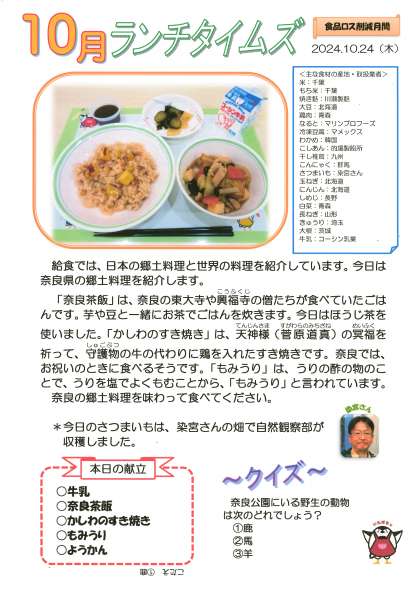 10月ランチタイムズ
食品ロス削減月間
2024.10.24（木）
＜主な食材の産地・取扱業者＞
米：千葉
もち米：千葉
焼き麩：川瀬製麩
大豆：北海道
鶏肉：青森
なると：マリンプロフーズ
冷凍豆腐：マメックス
わかめ：韓国
こしあん：的場製餡所
干し椎茸：九州
こんにゃく：群馬
さつまいも：染宮さん
玉ねぎ：北海道
にんじん：北海道
しめじ：長野
白菜：青森
長ねぎ：山形
きゅうり：埼玉
大根：茨城
牛乳：コーシン乳業
給食では、日本の郷土料理と世界の料理を紹介しています。今日は
奈良県の郷土料理を紹介します。
こうふくじ
「奈良茶飯」は、奈良の東大寺や興福寺の僧たちが食べていたごは
んです。芋や豆と一緒にお茶でごはんを炊きます。今日はほうじ茶を
てんじんさま すがわらのみちざね めいふく
使いました。「かしわのすき焼き」は、天神様（菅原道真）の冥福を
しゅごぶつ
祈って、守護物の牛の代わりに鶏を入れたすき焼きです。奈良では、
お祝いのときに食べるそうです。「もみうり」は、うりの酢の物のこ
とで、うりを塩でよくもむことから、「もみうり」と言われています。
奈良の郷土料理を味わって食べてください。
＊今日のさつまいもは、染宮さんの畑で自然観察部が
収穫しました。
染宮さん
本日の献立
○牛乳
○奈良茶飯
○かしわのすき焼き
○もみうり
○ようかん
～クイズ～
奈良公園にいる野生の動物
は次のどれでしょう？
①鹿
②馬
③羊
こたえ ①鹿